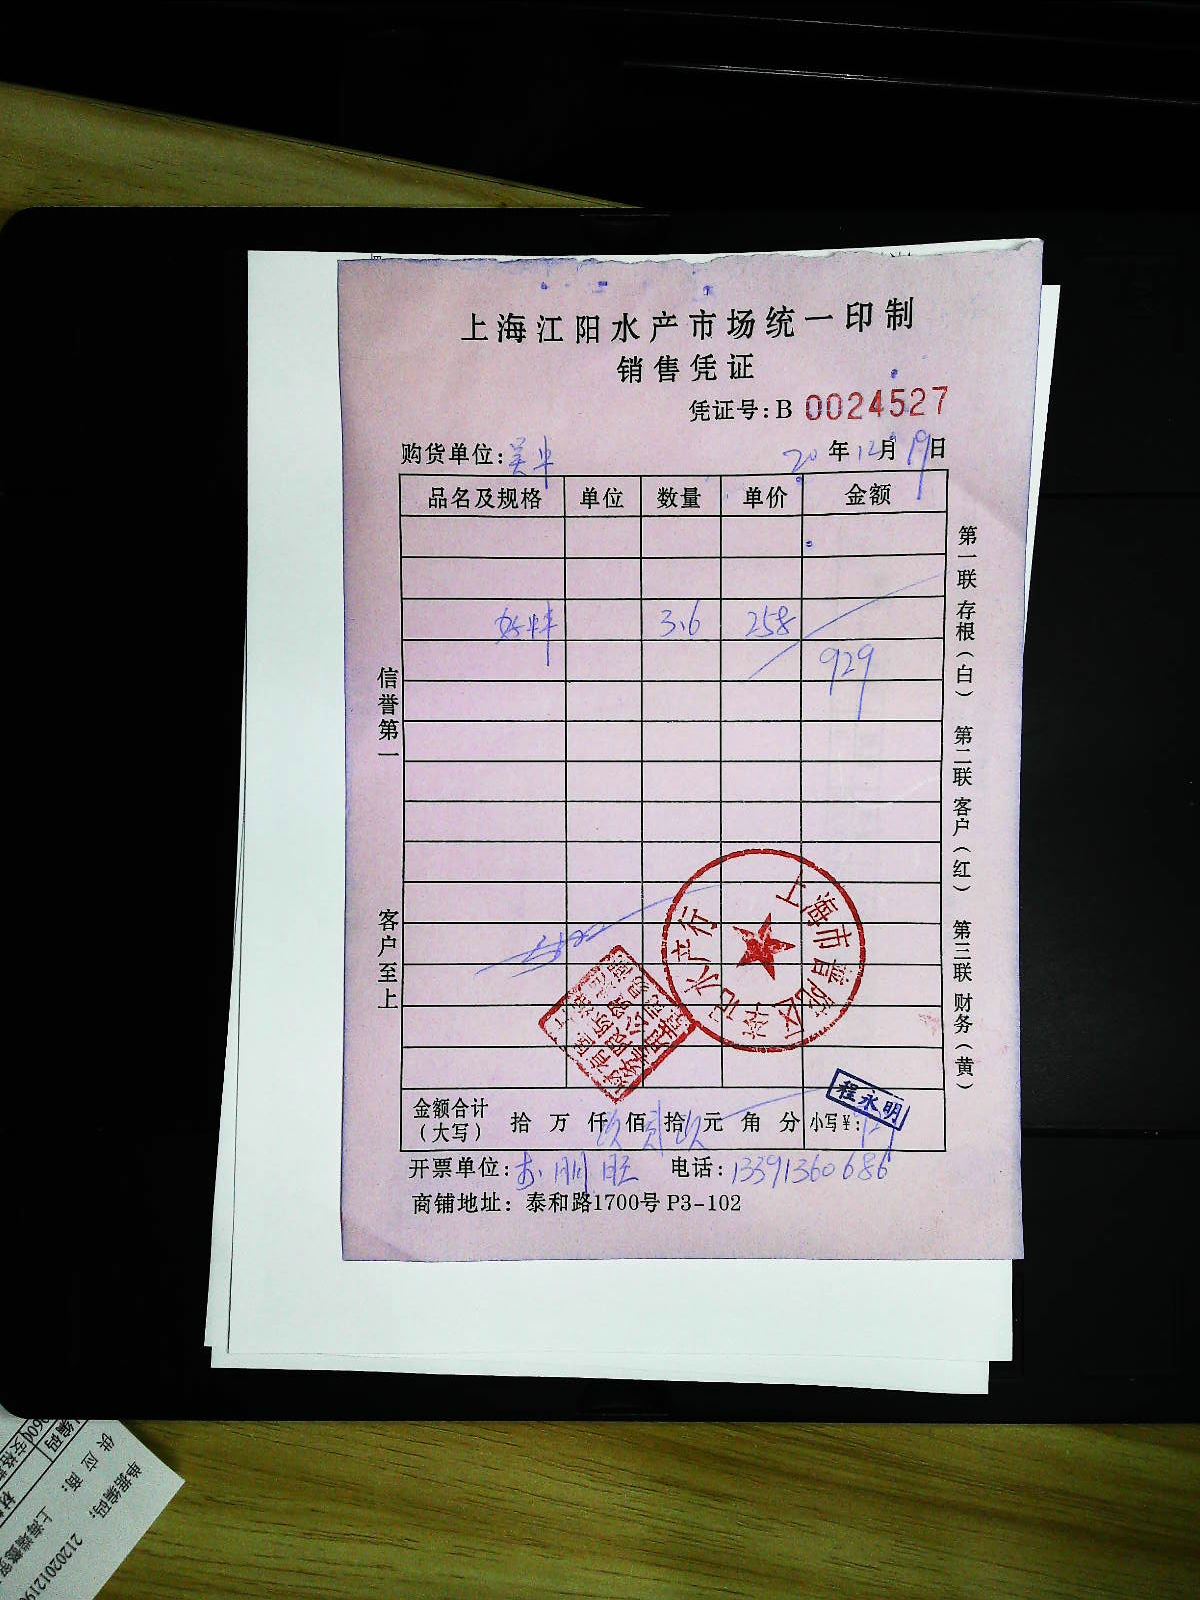 上海江阳水产市场统一印制
销售凭证
凭证号:B 0024527
购货单位: 20年12月19日
品名及规格 单位 数量 单价 金额
3.6 258
929
信誉第一
客户至上
第一联 存根(白) 第二联 客户(红) 第三联 财务(黄)
上海市普陀区
水产行
程永明
金额合计(大写) 拾 万 仟 玖 佰 贰 拾 玖 元 角 分 小写¥: 929
开票单位: 电话: 13391360686
商铺地址: 泰和路1700号 P3-102
编码
供应商:
单据编码: